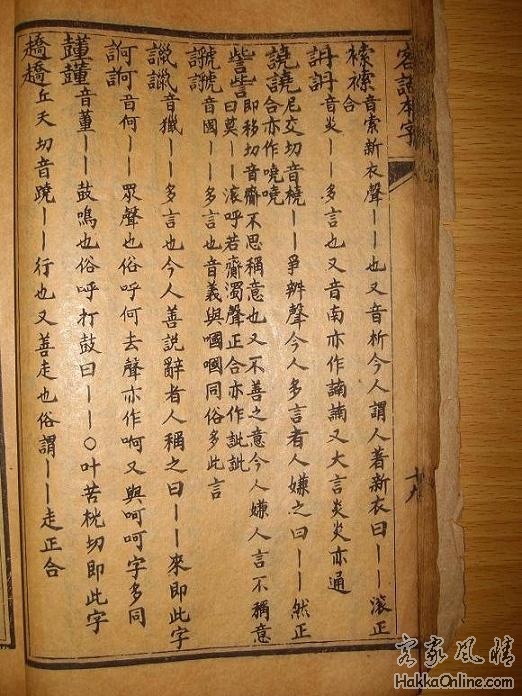 客話本字
音索新衣聲丨丨也又音析今人謂人著新衣曰丨丨滾正
合
䛁䛁音炎丨丨多言也又音南亦作諵諵又大言炎炎亦通
譊譊尼交切音橈丨丨爭辨聲今人多言者人嫌之曰丨丨然正
合亦作嘵嘵
訾訾即移切音齊不思稱意也又不善之意今人嫌人言不稱意
曰莫丨丨滾呼若齊濁聲正合亦作訿訿
音國丨丨多言也音義與嘓嘓同俗多此言
音獵丨丨多言也今人善説辭者人稱之曰丨丨來即此字
訶訶音何丨丨眾聲也俗呼何去聲亦作啊又與呵呵字多同
音董丨丨鼓鳴也俗呼打鼓曰丨丨〇叶苦桄切即此字
趫趫丘夭切音蹺丨丨行也又善走也俗謂丨丨走正合
客家風情
HakkaOnline.com